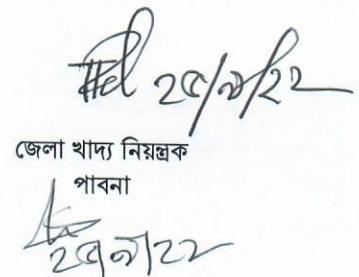 ২৫/৯/২২
জেলা খাদ্য নিয়ন্ত্রক
পাবনা
২৫/৯/২২